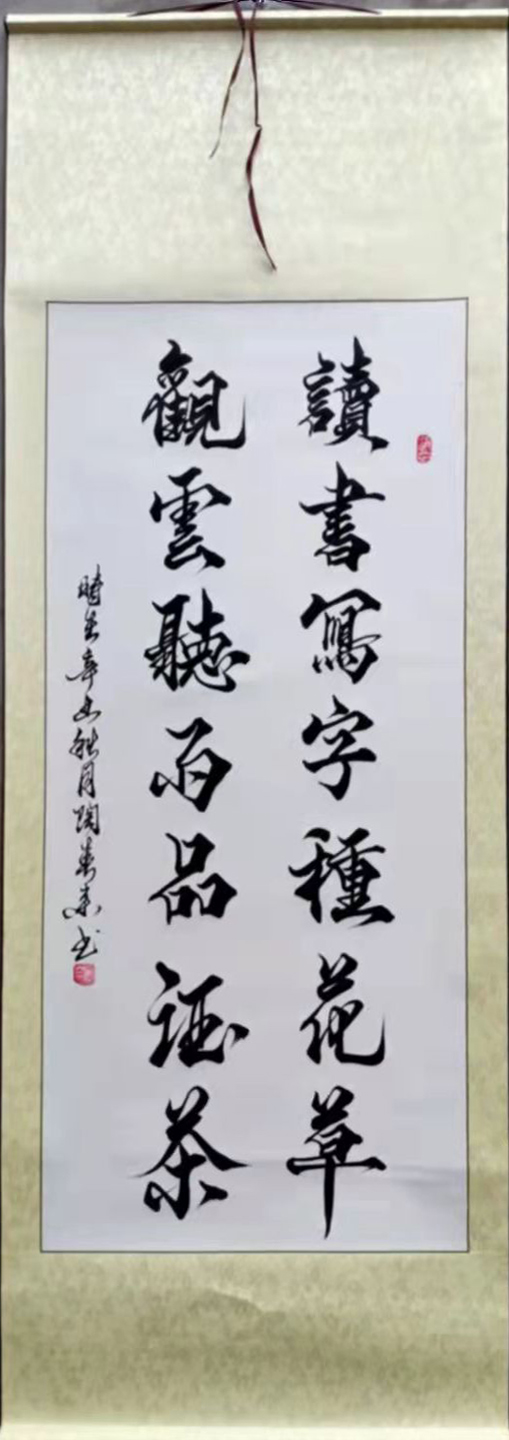 讀書寫字種花草
觀雲聽雨品証茶
時在辛丑秋月陶東書